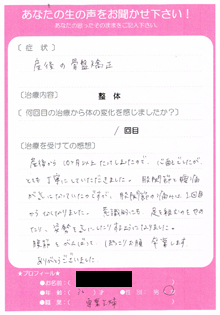 あなたの生の声をお聞かせ下さい！
あなたの思ったそのままをご記入下さい。
〔 症 状 〕
産後の骨盤矯正
〔治療内容〕 整 体
（ 何回目の治療から体の変化を感じましたか？）
/ 回目
〔治療を受けての感想〕
産後から10ヶ月以上たけしましたので、心配でしたが
とても丁寧にしていただきました。股関節と腰痛
が気になっていたのですが、股関節の痛みは、1回目
からなくなりました。意識的にも、足を組むのをやめ
たり、姿勢を気にしたりするようになりました。
腹筋もがんばって、ぽっこりお腹 卒業します
ありがとうございました
＜プロフィール＞
●お名前（
●年 齢（ ●性 別（ 男・
●職 業（ 専業主婦 ）